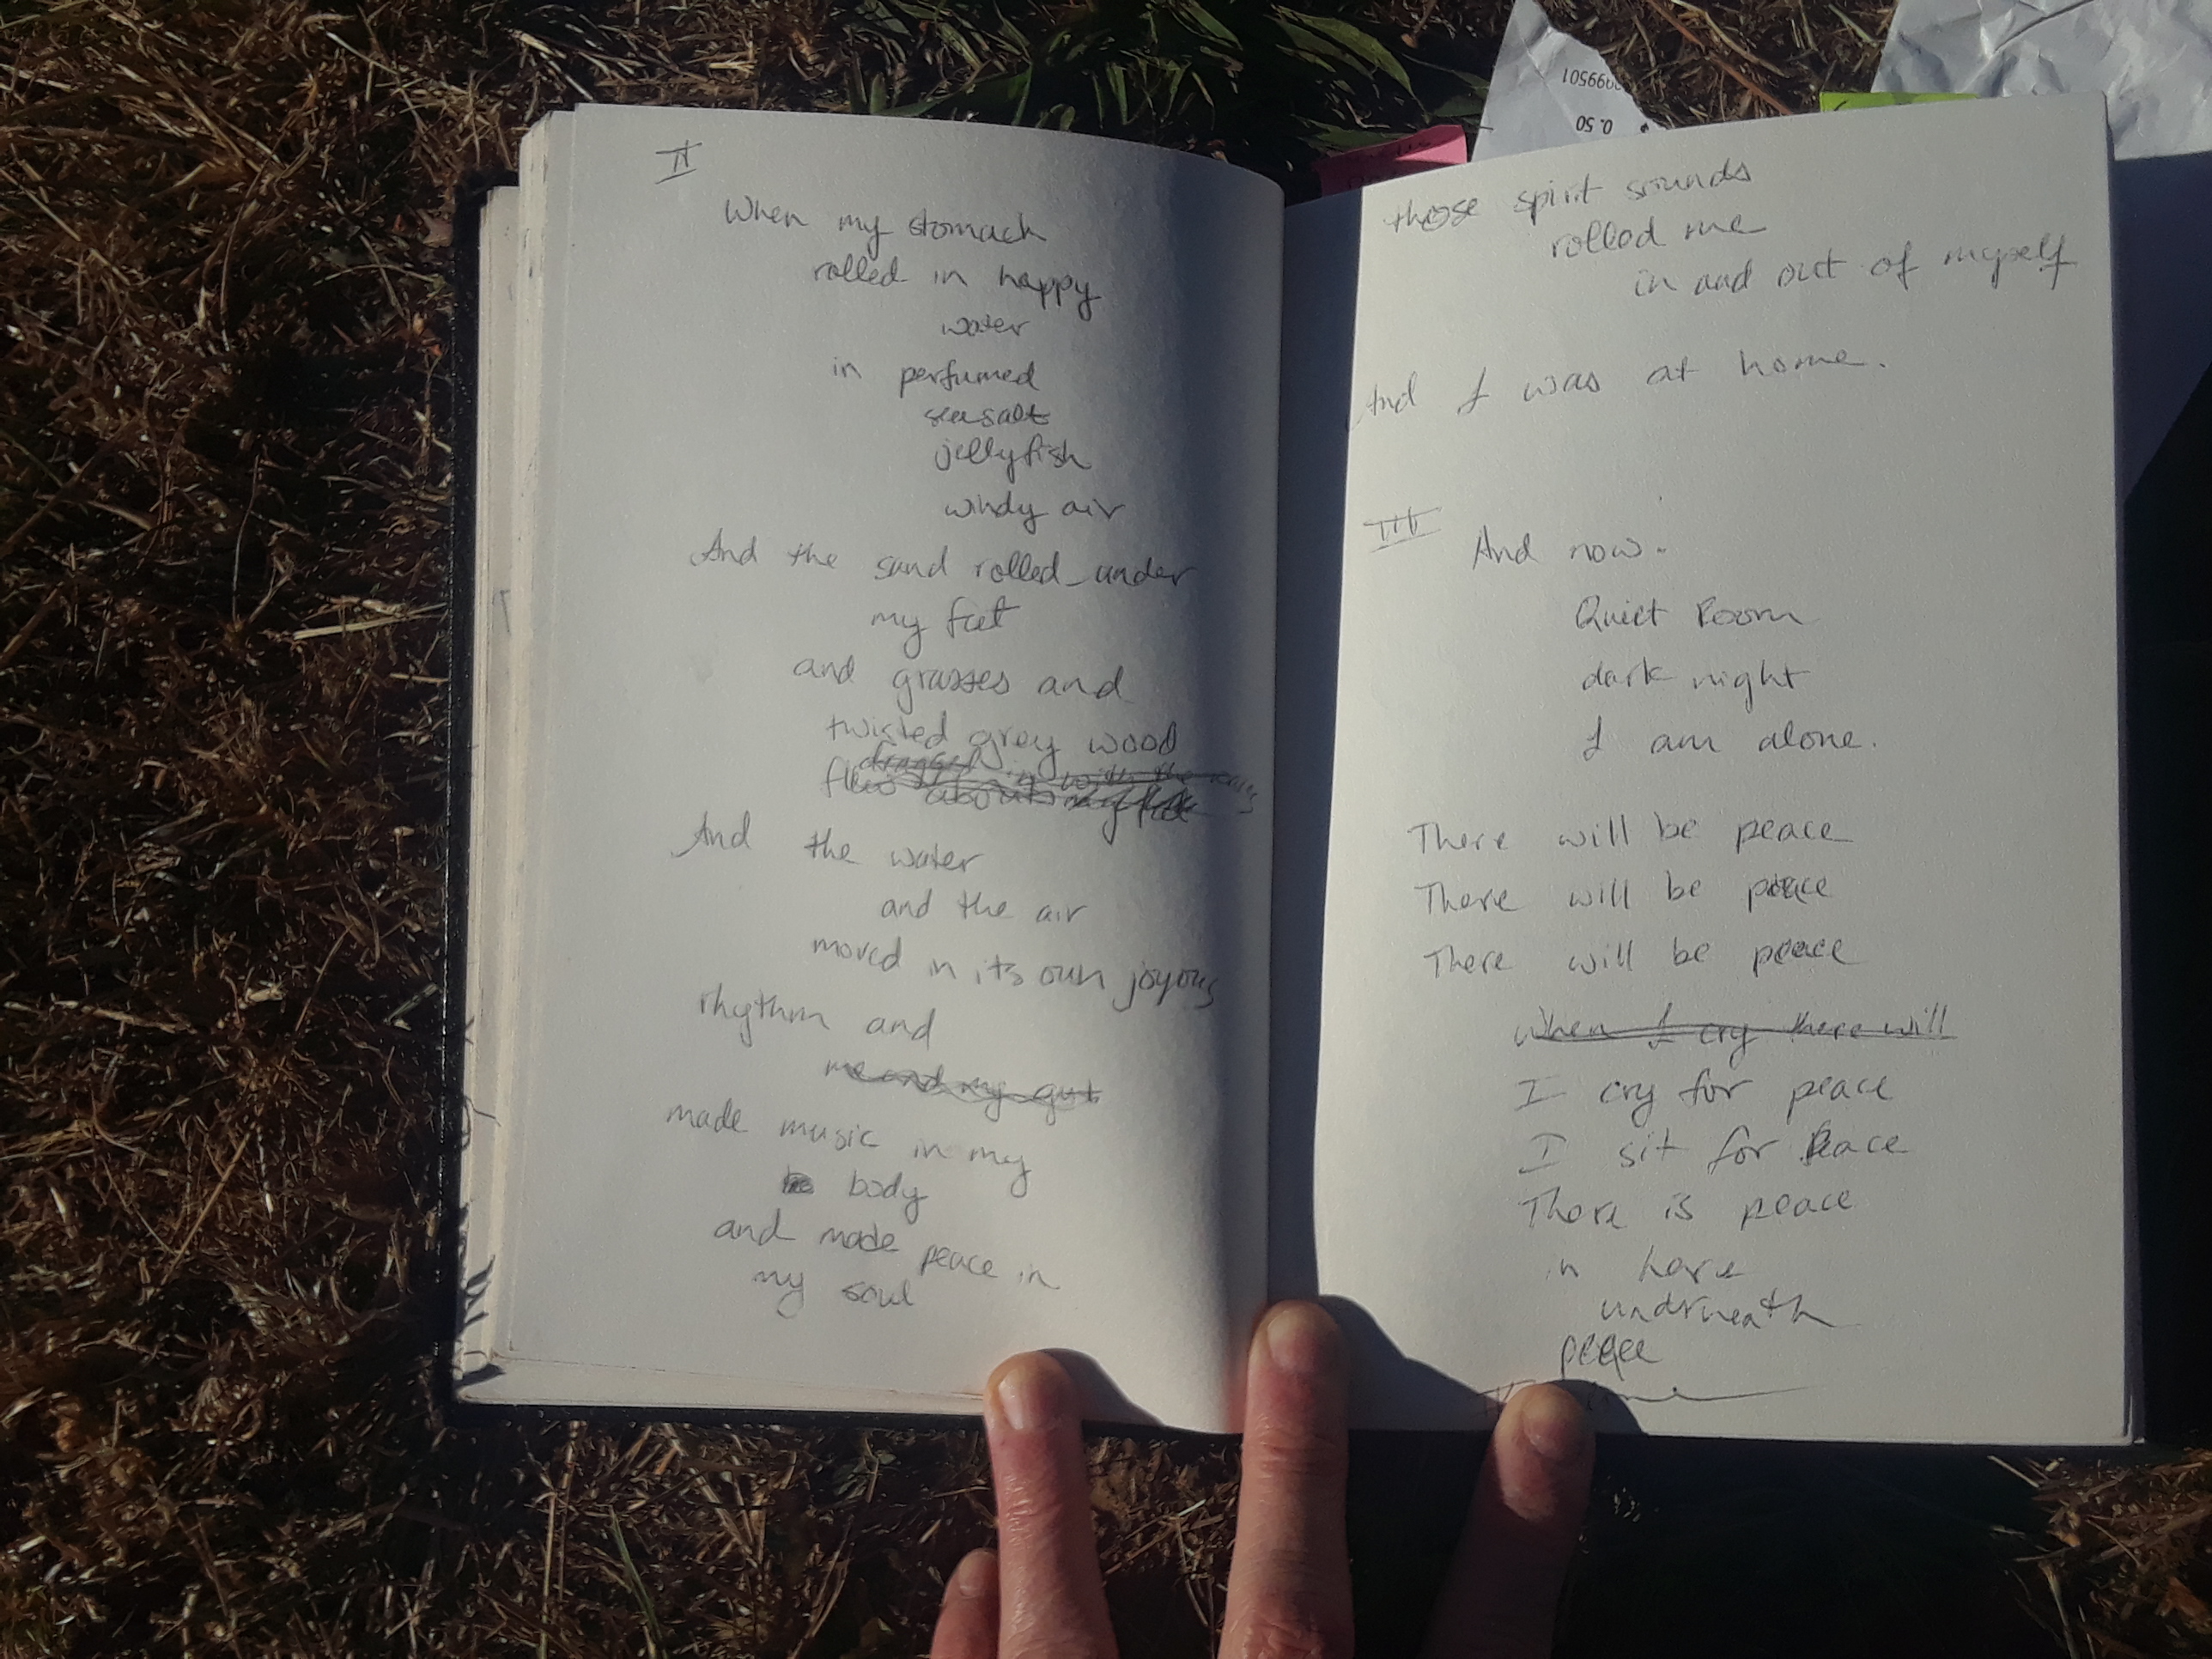 II
When my stomach
rolled in happy
water
in perfumed
seasalt
jellyfish
windy air
And the sand rolled under
my feet
and grasses and
twisted grey wood
dragged in with the
flew about my feet
And the water
and the air
moved in its own joyous
rhythm and
me and my gut
made music in my
body
and made peace in
my soul
those spirit sounds
rolled me
in and out of myself
And I was at home.
III
And now.
Quiet Room
dark night
I am alone.
There will be peace
There will be peace
There will be peace
When I cry there will
I cry for peace
I sit for Peace
There is peace
in here
underneath
peace
99501
0.50